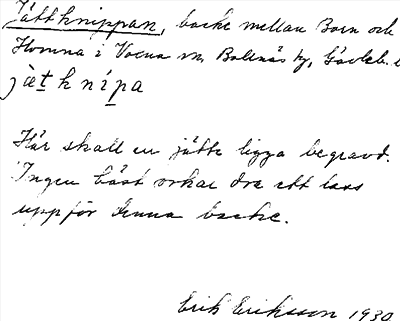 Jättknippan, backe mellan Born och
Homna i Voxna sn, Bollnäs tg, Gävleb. l
jätknípa
Här skall en jätte ligga begravd.
Ingen häst orkar dra ett lass
uppför denna backe.
Erik Eriksson 1930